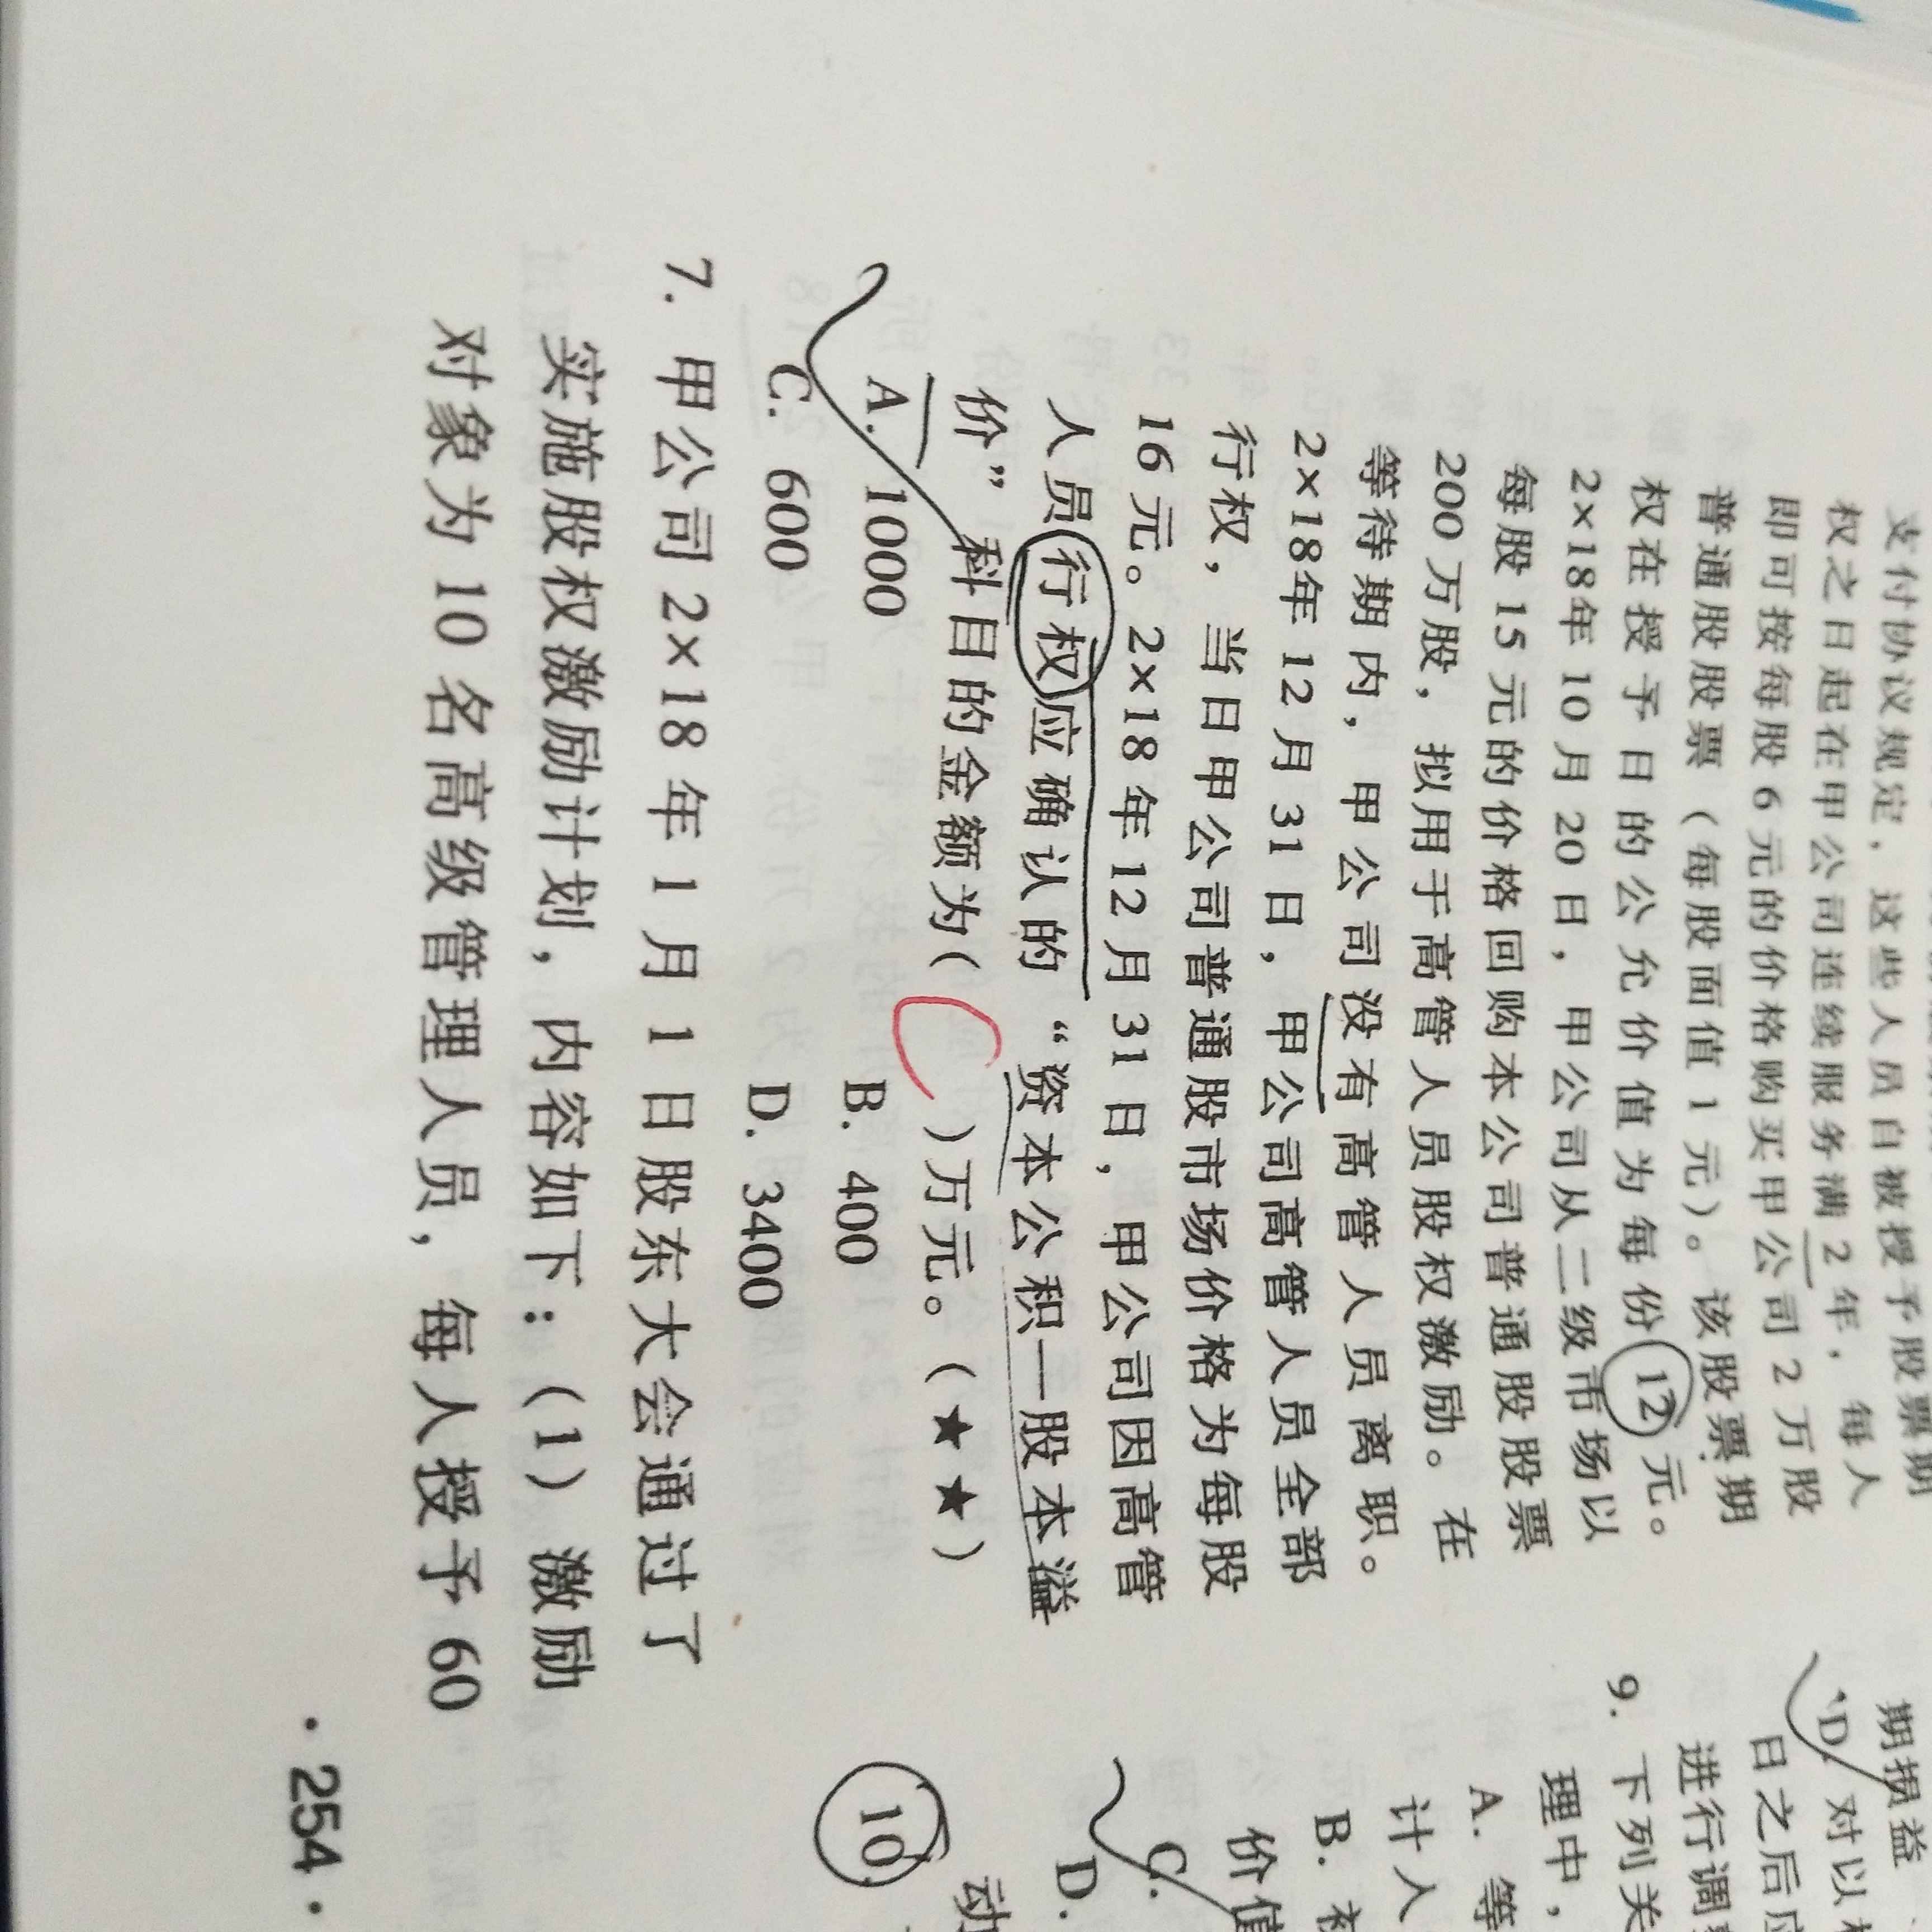 支付协议规定，这些人员自被授予股票期
权之日起在甲公司连续服务满 2 年，每人
即可按每股 6 元的价格购买甲公司 2 万股
普通股股票（每股面值 1 元）。该股票期
权在授予日的公允价值为每份 12 元。
2×18年 10 月 20 日，甲公司从二级市场以
每股 15 元的价格回购本公司普通股股票
200 万股，拟用于高管人员股权激励。在
等待期内，甲公司没有高管人员离职。
2×18年 12 月 31 日，甲公司高管人员全部
行权，当日甲公司普通股市场价格为每股
16 元。2×18 年 12 月 31 日，甲公司因高管
人员行权应确认的“资本公积—股本溢
价”科目的金额为（ C ）万元。（★★）
A. 1000 B. 400
C. 600 D. 3400
7. 甲公司 2×18 年 1 月 1 日股东大会通过了
实施股权激励计划，内容如下：（1）激励
对象为 10 名高级管理人员，每人授予 60
· 254 ·
期损益
D. 对以
日之后应
进行调整
9. 下列关
理中，
A. 等
计入
B. 初
价值
C.
D.
10.
动